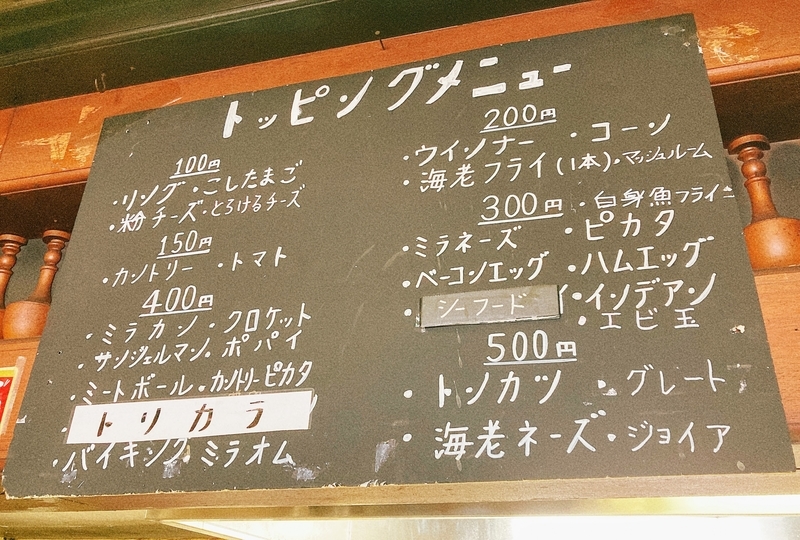 トッピングメニュー
100円
・リング・こしたまご
・粉チーズ・とろけるチーズ
150円
・カントリー ・トマト
400円
・ミラカン・クロケット
・サンジェルマン・ポパイ
・ミートボール・カントリーピカタ
トリカラ
・バイキング・ミラオム
200円
・ウインナー ・コーン
・海老フライ(1本)・マッシュルーム
300円 ・白身魚フライ
・ミラネーズ ・ピカタ
・ベーコンエッグ ・ハムエッグ
・シーフード ・インデアン
・エビ玉
500円
・トンカツ ・グレート
・海老ネーズ・ジョイア